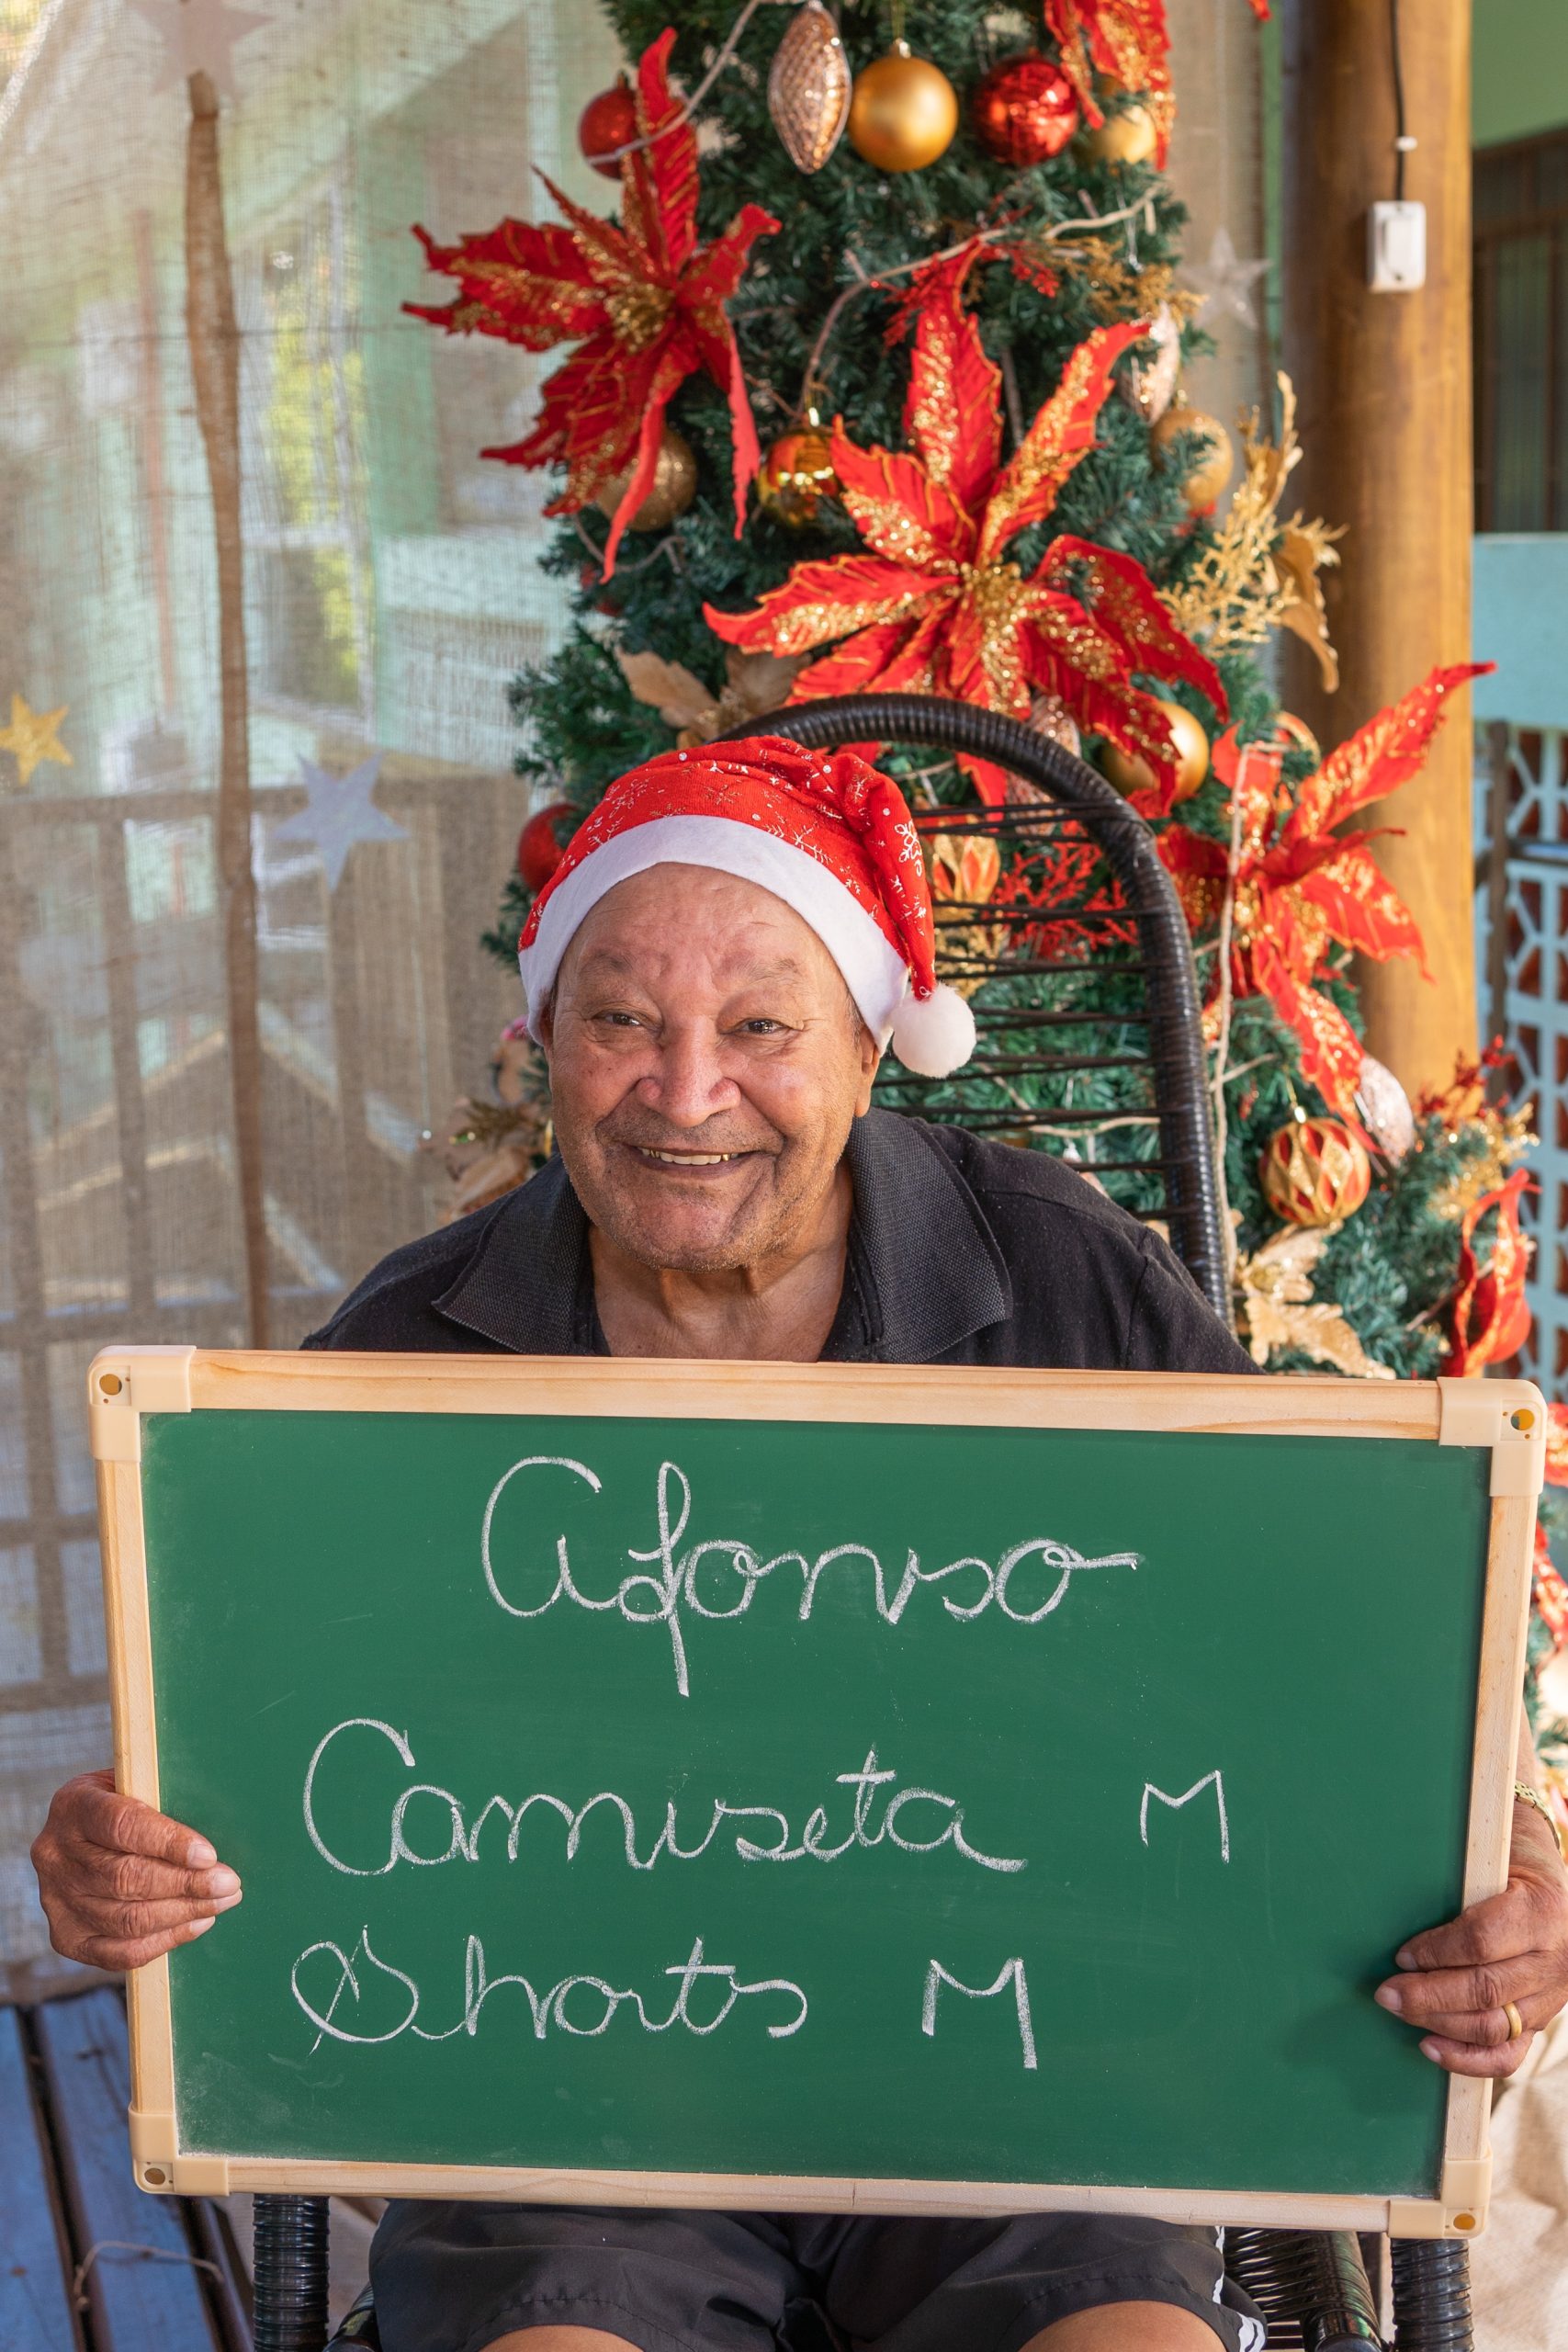 Afonso
Camiseta M
Shorts M